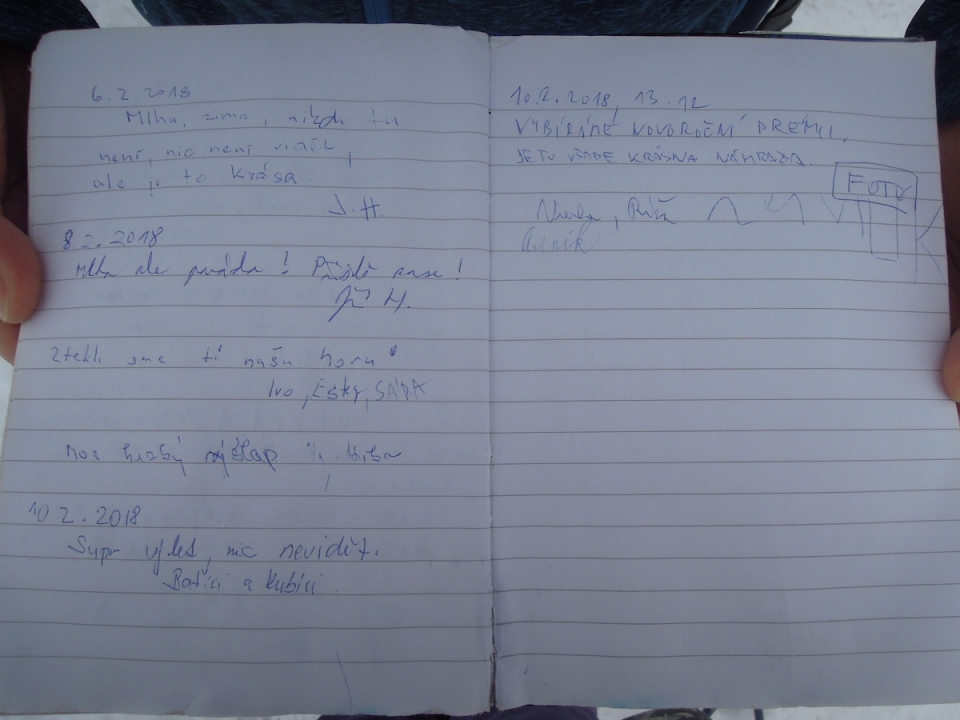 6.2.2018
Mlha, zima, nikdo tu
není, nic není vidět,
ale je to krása.
J.H.
8.2.2018
Mlha ale paráda! Přijdu zase!
Jiří H.
Ztekli sme tu našu horu
Ivo, Esky, SÁRA
Moc hezký výšlap
10.2.2018
Supr výlet, nic nevidět.
Batíci a Kubíci
10.2.2018, 13.12
VYBÍRÁME NOVOROČNÍ PRÉMII.
JE TU VŠUDE KRÁSNÁ NÁHRADA.
FOTO